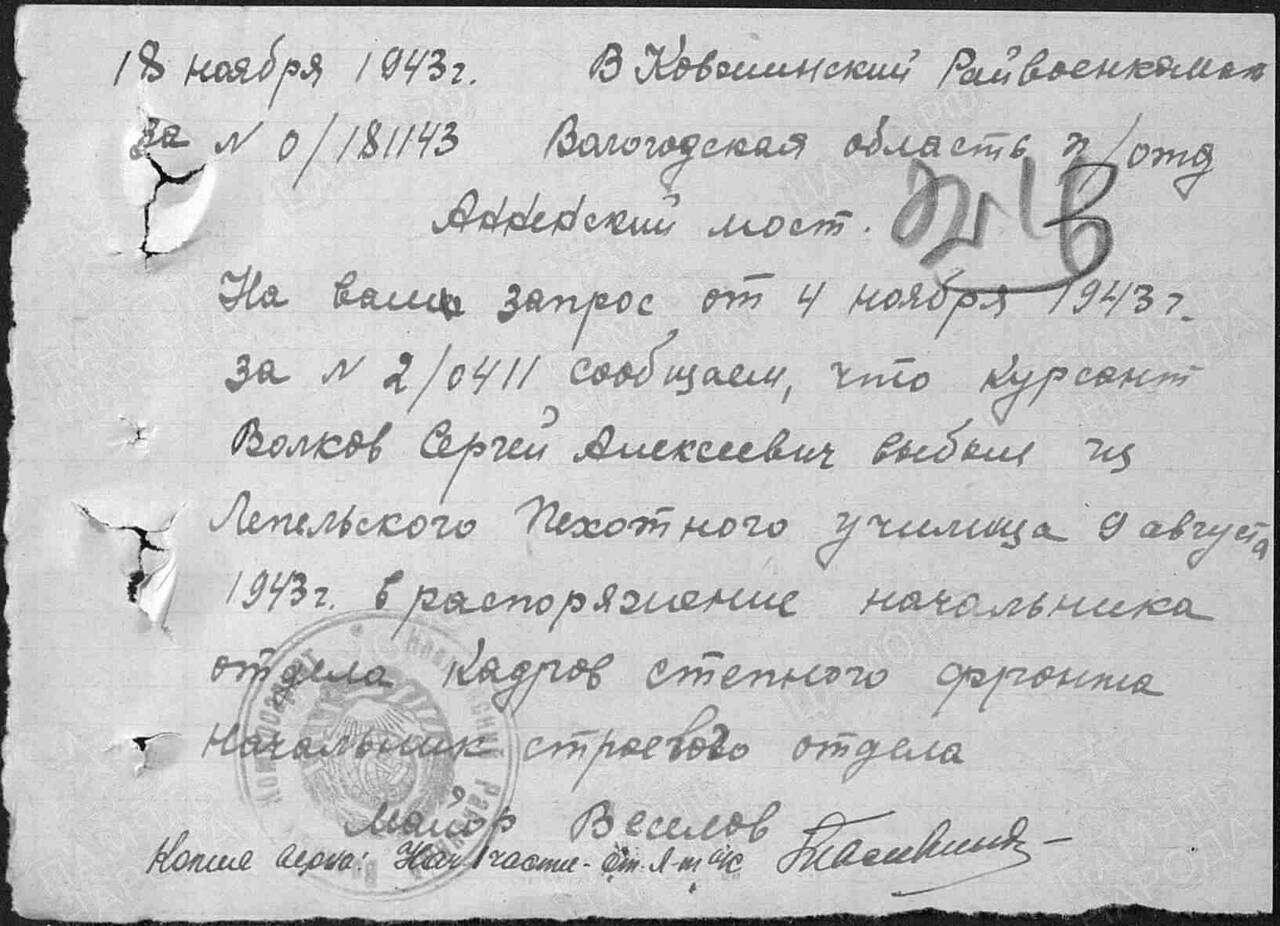 18 ноября 1943 г. В Ковжинский Райвоенкомат
за N 0/181143 Вологодская область п/отд
Анненский мост.
На ваш запрос от 4 ноября 1943 г.
за N 2/0411 сообщаем, что курсант
Волков Сергей Алексеевич выбыл из
Лепельского Пехотного училища 9 августа
1943 г. в распоряжение начальника
отдела Кадров степного фронта
Начальник строевого отдела
Майор Веселов
Копия верна: Нач 1 части - ст. л-т а/с